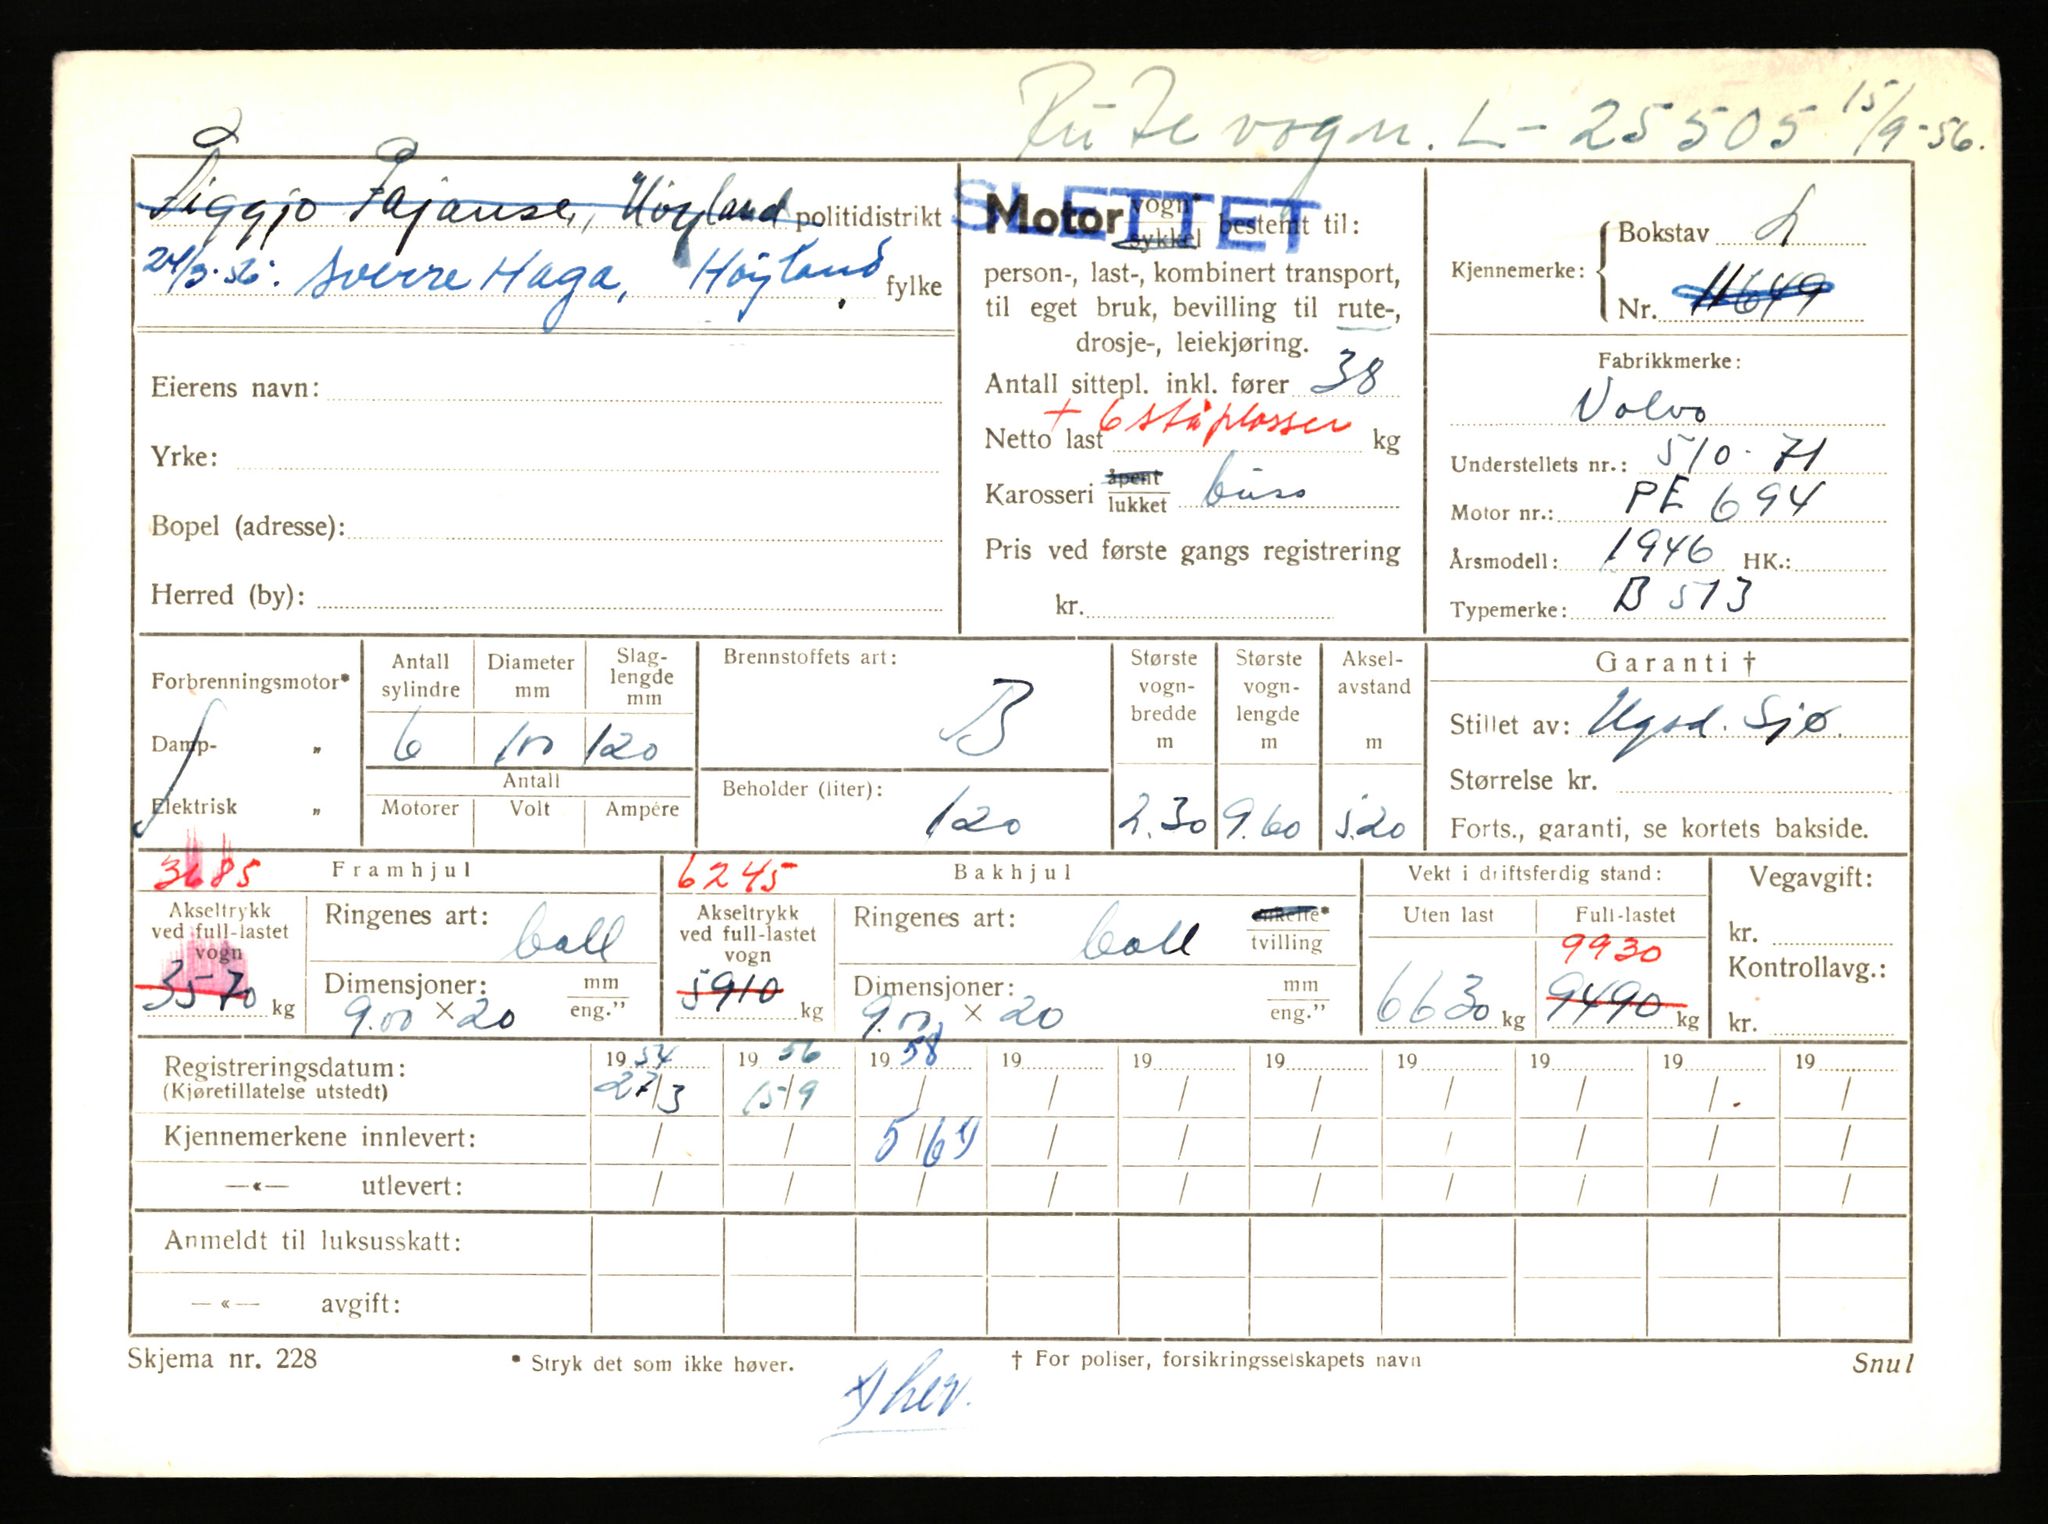 Rutevogn. L-25505 15/9-56.
Figgjo Fajanse, Høyland politidistrikt
24/3-56. Sverre Haga, Høyland fylke
Eierens navn:
Yrke:
Bopel (adresse):
Herred (by):
SLETTET
Motor vogn* sykkel bestemt til:
person-, last-, kombinert transport,
til eget bruk, bevilling til rute-,
drosje-, leiekjøring.
Antall sittepl. inkl. fører 38
+ 6 ståplasser
Netto last kg
Karosseri åpent lukket buss
Pris ved første gangs registrering
kr.
Kjennemerke: Bokstav L
Nr. 11649
Fabrikkmerke:
Volvo
Understellets nr.: 510-71
Motor nr.: PE 694
Årsmodell: 1946 HK.:
Typemerke: B 513
Forbrenningsmotor*
Damp- „
Elektrisk „
Antall sylindre 6
Diameter mm 100
Slaglengde mm 120
Antall
Motorer Volt Ampére
Brennstoffets art: B
Beholder (liter): 120
Største vognbredde m 2.30
Største vognlengde m 9.60
Akselavstand m 5.20
Garanti †
Stillet av: Ugsd. Sjø.
Størrelse kr.
Forts., garanti, se kortets bakside.
3685 Framhjul
Akseltrykk ved full-lastet vogn 3570 kg
Ringenes art: ball
Dimensjoner: 9.00 × 20 mm eng."
6245 Bakhjul
Akseltrykk ved full-lastet vogn 5910 kg
Ringenes art: ball enkelte* tvilling
Dimensjoner: 9.00 × 20 mm eng."
Vekt i driftsferdig stand:
Uten last 6630 kg
Full-lastet 9930 9490 kg
Vegavgift:
kr.
Kontrollavg.:
kr.
Registreringsdatum: 1954 1956 1958 19 19 19 19 19 19 19
(Kjøretillatelse utstedt) 27/3 15/9 / / / / / / / /
Kjennemerkene innlevert: / / 5/6 / / / / / / /
—«— utlevert: / / / / / / / / / /
Anmeldt til luksusskatt:
—«— avgift:
Skjema nr. 228 * Stryk det som ikke høver. † For poliser, forsikringsselskapets navn Snul